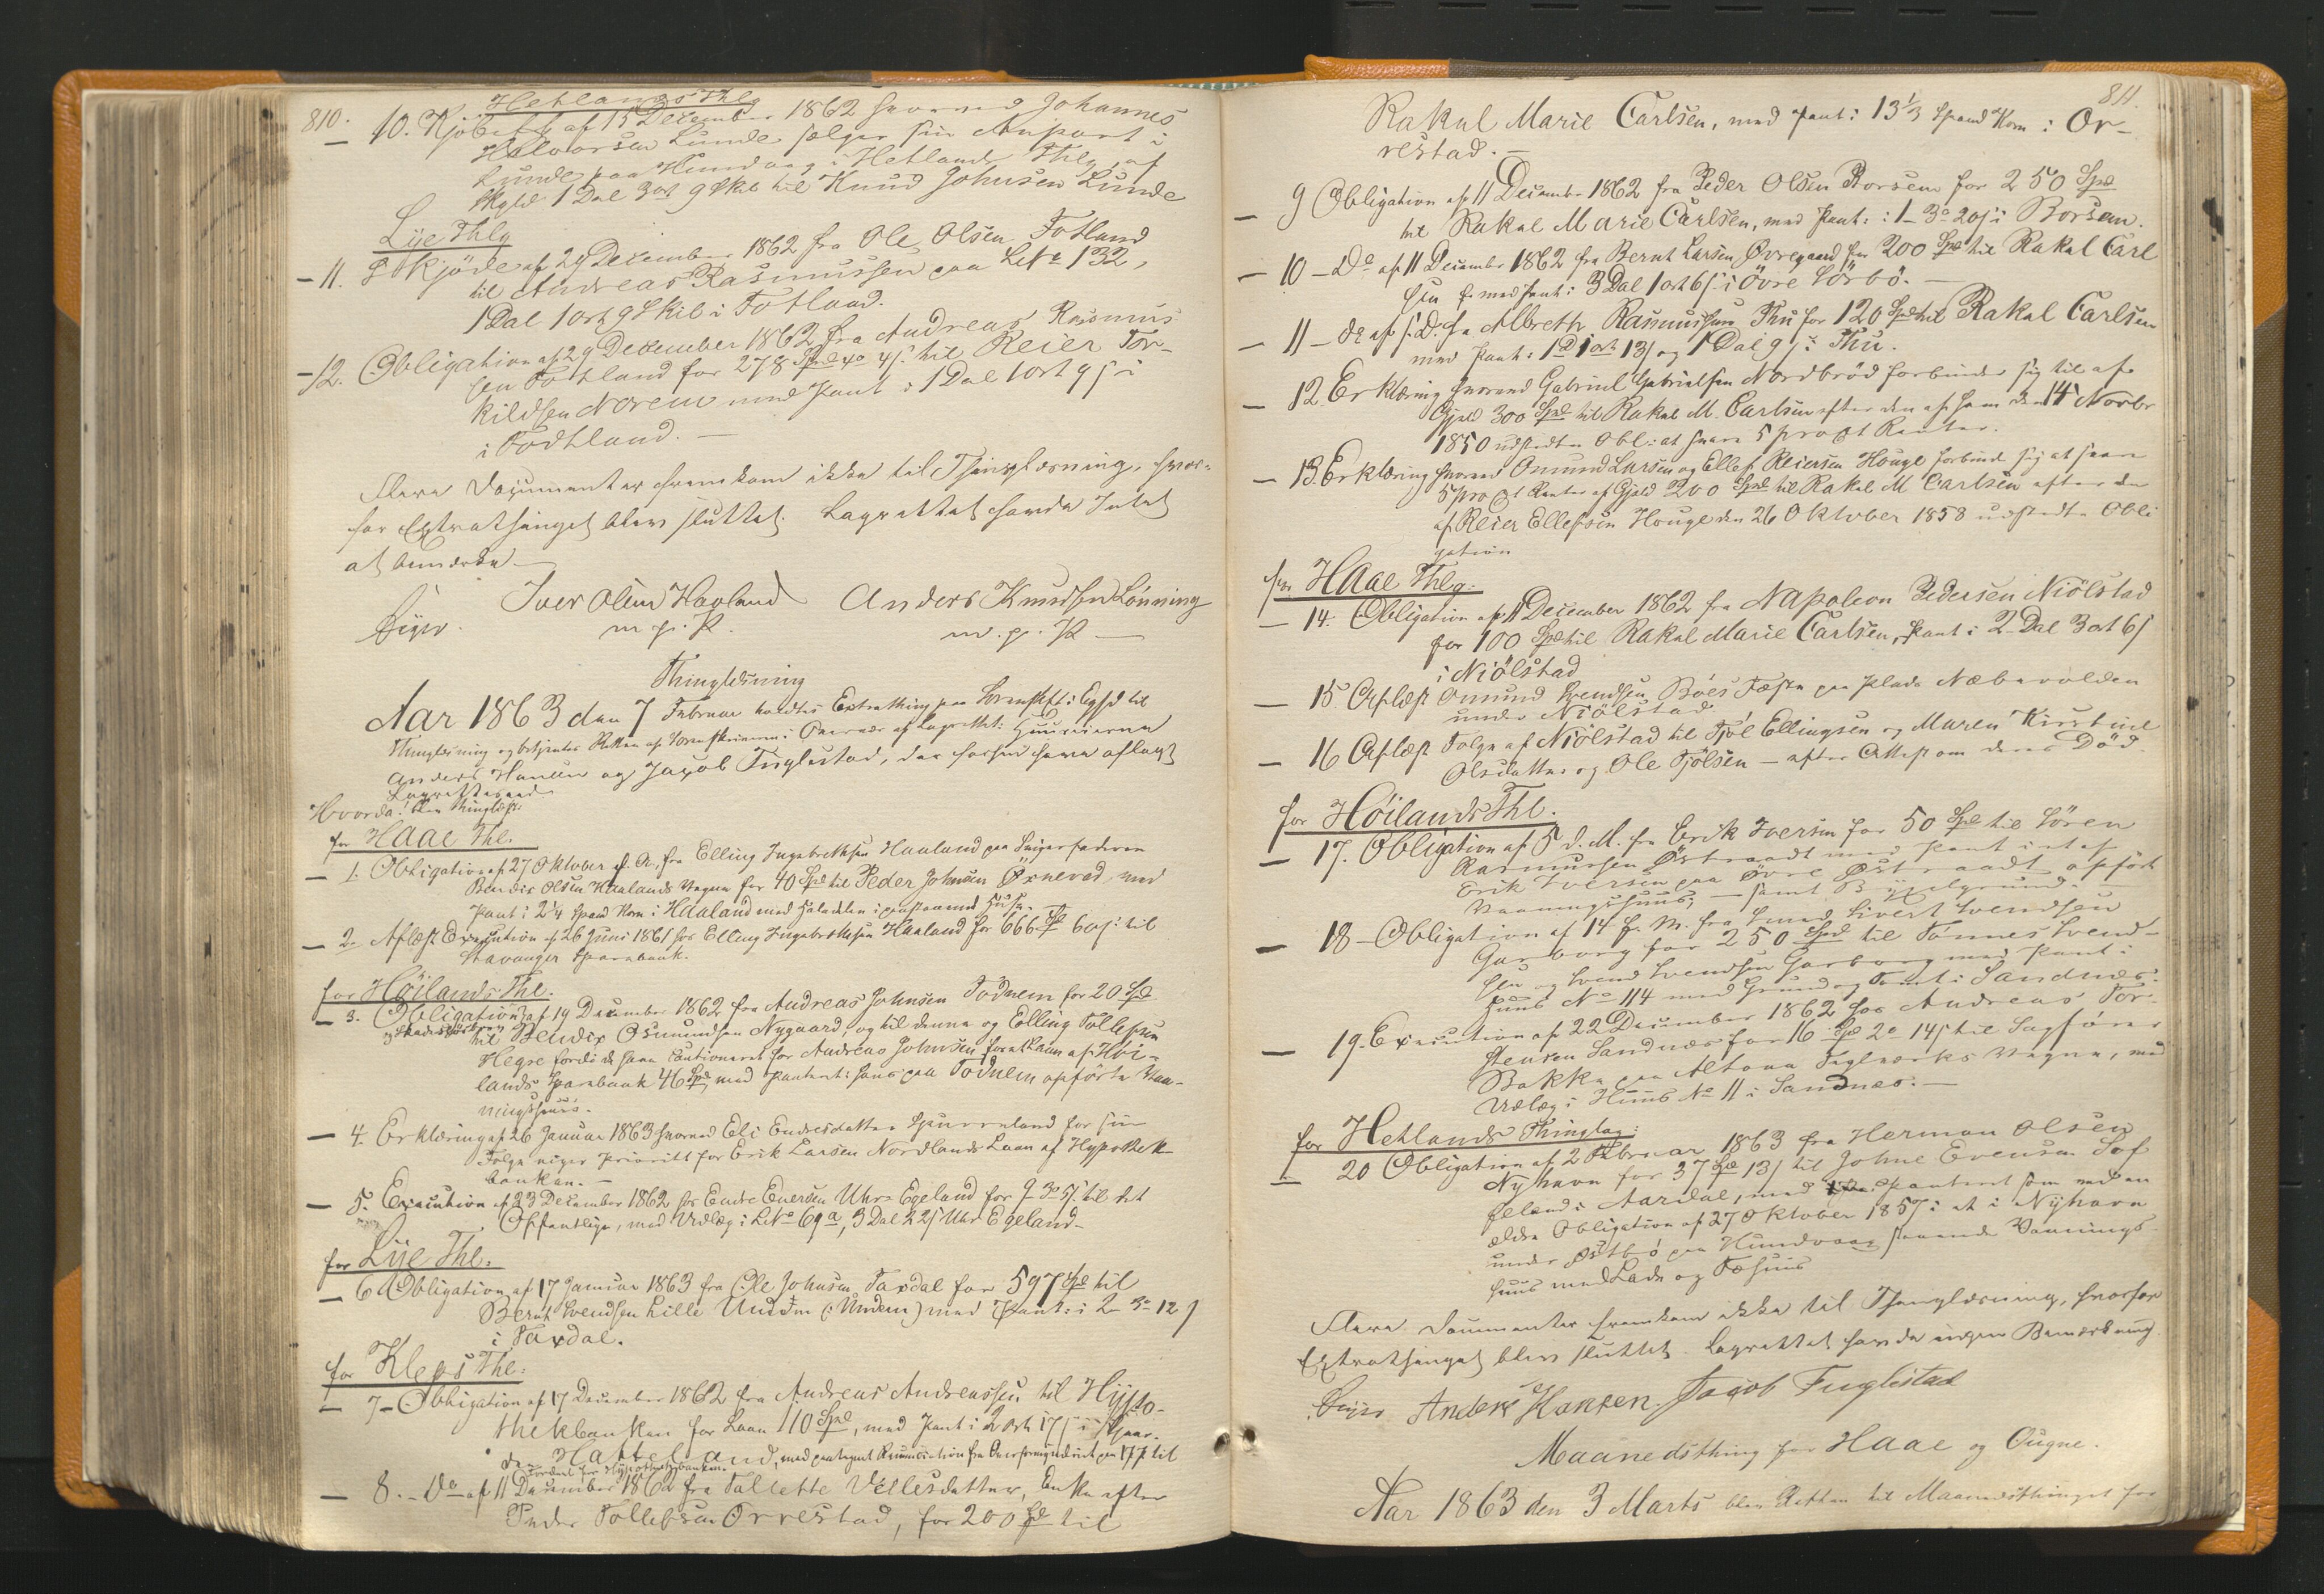 810.
Hetlands Thlg
10. Kjöbebr af 15 December 1862 hvorved Johannes
Halvorsen Lunde sælger sin Anpart i
Lunde paa Hundvaag i Hetlands Thlg, af
Skyld 1 Dal 3 ort 9 Skil til Knud Johnsen Lunde
Lye Thlg
11. Skjöde af 29 December 1862 fra Ole Olsen Fotland
til Andreas Rasmussen paa LNo 132,
1 Dal 1 ort 9 Skil i Fotland.
12. Obligation af 29 December 1862 fra Andreas Rasmus
sen Fotland for 278 Spd 4 4 s. til Reier Tor-
kildsen Norem med Pant i 1 Dal 1 ort 9 s i
i Fodtland. —
Flere Documenter fremkom ikke til Thinglæsning, hvor-
for Extrathinget blev sluttet. Lagrettet havde Intet
at bemærke —
Iver Olsen Havland Anders Knudsen Lönning
m. p. P. m. p. P —
Thinglæsning
Aar 1863 den 7 Februar holdtes Extrathing paa til
Thinglæsning og betjentes Retten af Sorenskriveren i Overvær af Lagrettet:
Anders Hansen og Jacob Fuglestad, der have aflagt
Lagrettesed
Hvorda! blev thinglæst:
for Haae Thl.
1. Obligation af 27 Oktober f. A. fra Elling Ingebrethsen Haaland paa Svigerfaderen
Olsen Haalands Vegne for 40 Spd til Peder Johnsen Öxnevad med
Pant i 2 1/4 Spand Korn i Haaland med i paastaaende Huse. —
2. Aflæst Execution af 26 Juni 1861 hos Elling Ingebrethsen Haaland for 666 Sp 60 s. til
Stavanger Sparebank.
for Höilands Thl.
3. Obligation af 19 December 1862 fra Andreas Johnsen Todnem for 20 Spd
til Bendix Osmundsen Nygaard, og til denne og Edling Tollefsen
Hegre fordi de have cautioneret for Andreas Johnsen for et Laan af Höi-
lands Sparebank 46 Spd, med Panteret i hans paa Todnem opförte Vaa-
ningshuus.
4. Erklæring af 26 Januar 1863 hvorved Eli Endresdatter for sin
Folge viger Prioritet for Erik Larsen Nordlands Laan af Hypothek-
banken. —
5. Execution af 23 December 1862 hos Endre Enersen Uhre Egeland for 9 3 5 s. til det
Offentlige, med Udlæg i LNo 69 a, 3 Dal 22 s Uhr Egeland —
for Lye Thl.
6 Obligation af 17 Januar 1863 fra Ole Johnsen Taxdal for 597 Spd til
Bernt Svendsen Lille Undem (: Undem) med Pant i 2 3 12 s
i Taxdal.
for Kleps Thl:
7 — Obligation af 17 December 1862 fra Andreas Andreassen til Hypo-
thekbanken for Laan 110 Spd, med Pant i 2 ort 17 s i
Hatteland, med paategnet Renunciation fra Overformynderiet paa 177 til
Fordeel for Hypothekbanken.
8. — Do af 11 December 1862 fra Tallette Vellesdatter, Enke efter
Peder Tollefsen Orrestad, for 200 Spd til
811.
Rakel Marie Carlsen, med Pant i 13 1/3 Spand Korn i Or-
restad. —
9 Obligation af 11 December 1862 fra Peder Olsen Borsem for 250 Spd
til Rakel Marie Carlsen, med Pant: i 1 — 3 20 s i Borsem.
10 — Do af 11 December 1862 fra Bernt Larsen Övregaard for 200 Spd til Rakel Carl
sen med Pant i 3 Dal 1 ort 6 s. i Övre Sörbö. —
11 — do af s. D. fra Albreth Rasmussen Thu for 120 Spd til Rakel Carlsen
med Pant i 1 D 1 ort 13 s og 1 Dal 9 s i Thu.
12 Erklæring hvorved Gabriel Gabrielsen Nordbröd forbinder sig til af
Gjeld 300 Spd til Rakel M. Carlsen efter den af ham den 14 Novbr
1850 udstedte Obl: at svare 5 proCt Renter.
13. Erklæring hvorved Omund Larsen og Ellef Reiersen Houge forbinder sig at svare
5 proCt Renter af Gjeld 200 Spd til Rakel M Carlsen efter den
af Reier Ellefsen Houge den 26 Oktober 1858 udstedte Obli
gation
for Haae Thlg.
14. Obligation af 11 December 1862 fra Napoleon Pedersen Niölstad
for 100 Spd til Rakel Marie Carlsen, Pant i 2 Dal 3 ort 6 s
i Niölstad
15 Aflæst Omund Svendsen Böes Fæste paa Plads Næbevolden
under Niölstad.
16 Aflæst Folge af Niölstad til Tjöl Ellingsen og Maren Kirstine
Olsdatter og Ole Tjölsen — efter Attest om deres Död.
for Höilands Thl.
17. Obligation af 5 d. M. fra Erik Iversen for 50 Spd til Sören
Rasmussen Östraadt med Pant i et af
Erik Iversen paa Övre Östraadt opfört
Vaaningshuus, — samt Bygselgrund.
18 — Obligation af 14 f. M. fra Sivert Svendsen
Garborg for 250 Spd til Tönnes Svend-
sen og Svend Svendsen Garborg med Pant i
Huus No 114 med Grund og Tomt i Sandnæs.
19. Execution af 22 December 1862 hos Andreas Tor-
stensen Sandnæs for 16 Spd 2 14 s til Sagförer
Bakke paa Altona Teglværks Vegne, med
Udlæg i Huus No 11 i Sandnæs. —
for Hetlands Thinglag:
20 Obligation af 2 Februar 1863 fra Herman Olsen
Nyhavn for 37 Spd 13 s til Johne Evensen Sof
feland i Aardal, med Panteret som med en
ældre Obligation af 27 Oktober 1857 i et i Nyhavn
under Östbö paa Hundvaag staaende Vaanings
huus med Lade og Fæhuus
Flere Documenter fremkom ikke til Thinglæsning, hvorfor
Extrathinget blev sluttet. Lagrettet havde ingen Bemærkning.
Anders Hansen. Jacob Fuglestad
Maanedsthing for Haae og Ougne.
Aar 1863 den 3 Marts blev Retten til Maanedsthinget for